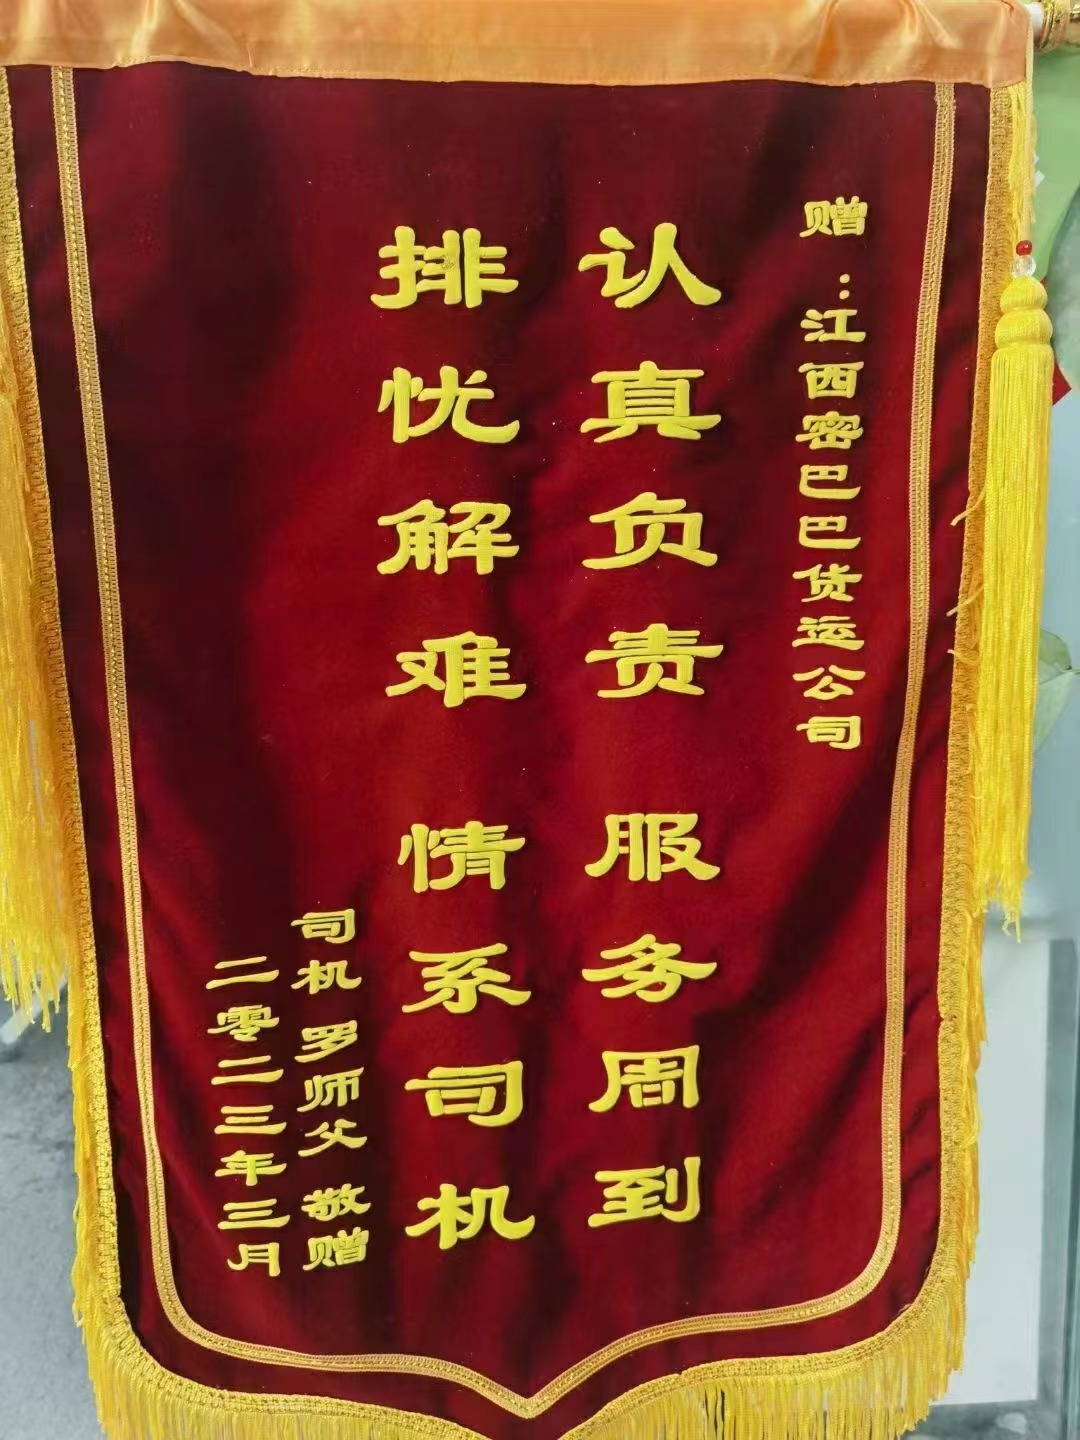 赠：江西密巴巴货运公司
认真负责 服务周到
排忧解难 情系司机
司机 罗师父 敬赠
二零二三年三月